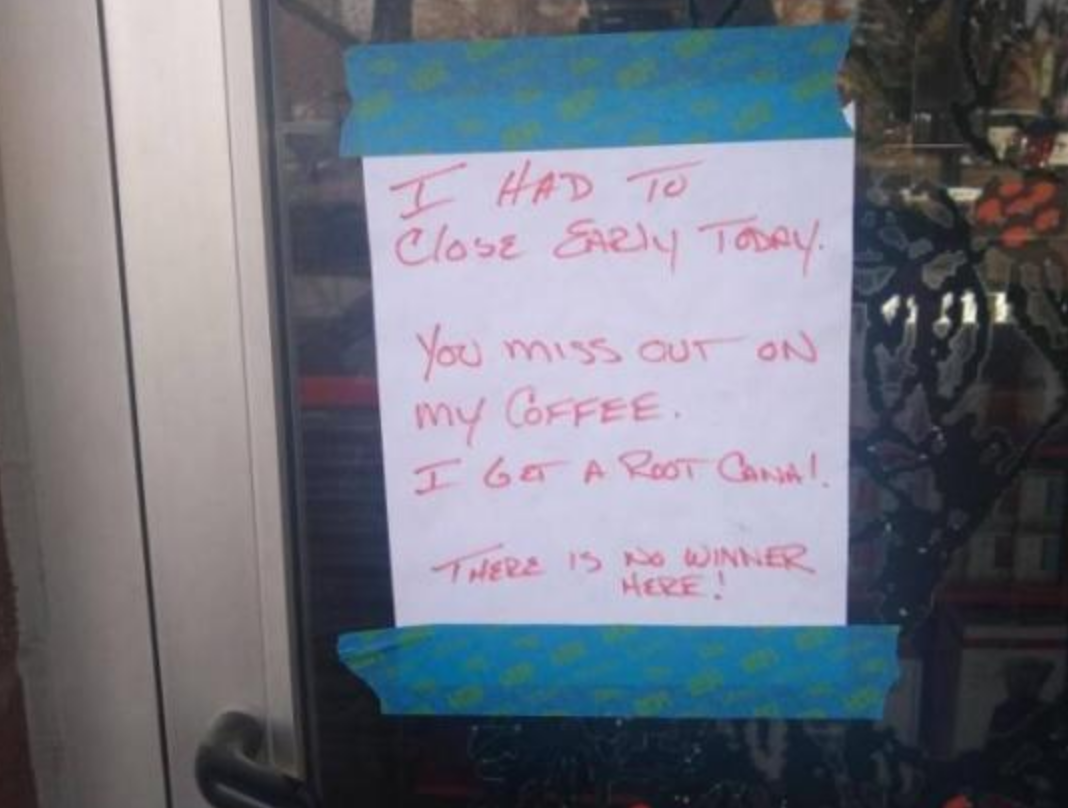 I HAD TO
Close EARly TODAY.
You miss out on
my COFFEE.
I GET A ROOT CANAl.
THERE IS NO WINNER
HERE!